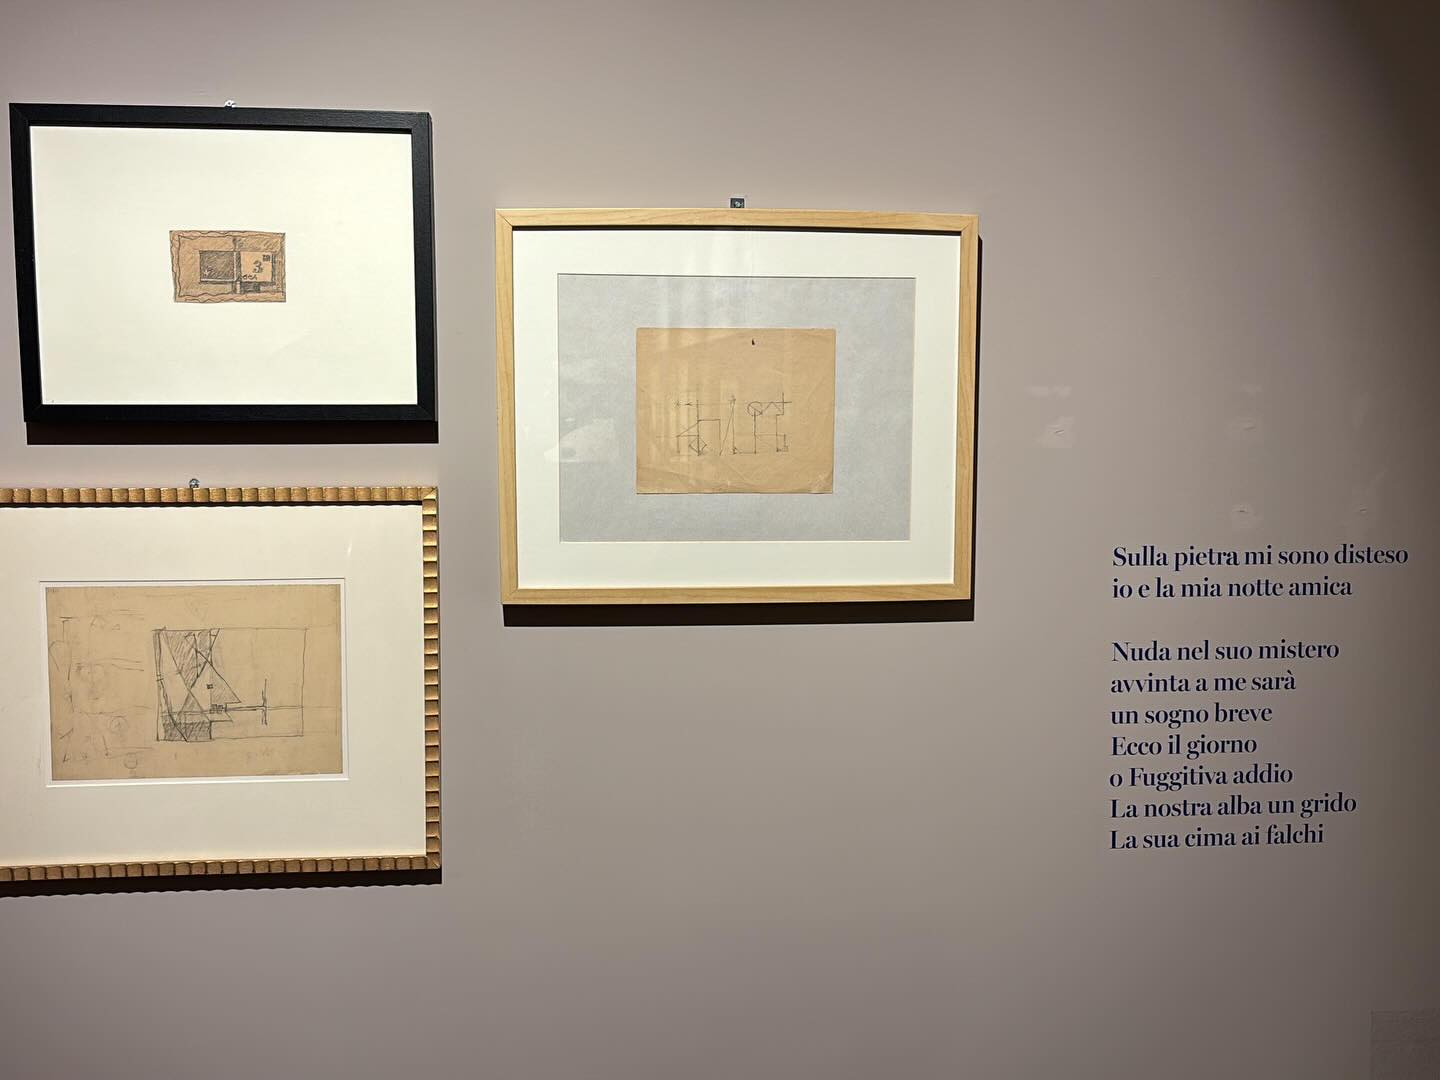 3
Sulla pietra mi sono disteso
io e la mia notte amica
Nuda nel suo mistero
avvinta a me sarà
un sogno breve
Ecco il giorno
o Fuggitiva addio
La nostra alba un grido
La sua cima ai falchi